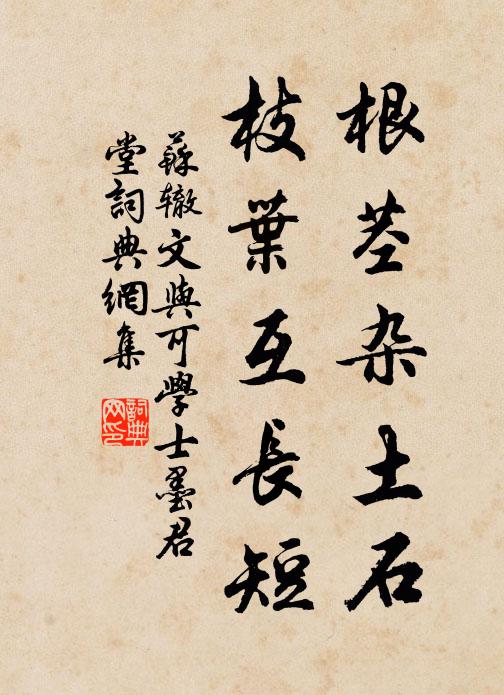 根茎杂土石
枝葉互長短
蘇辙文與可學士墨君
堂詞典網集
詞典网印